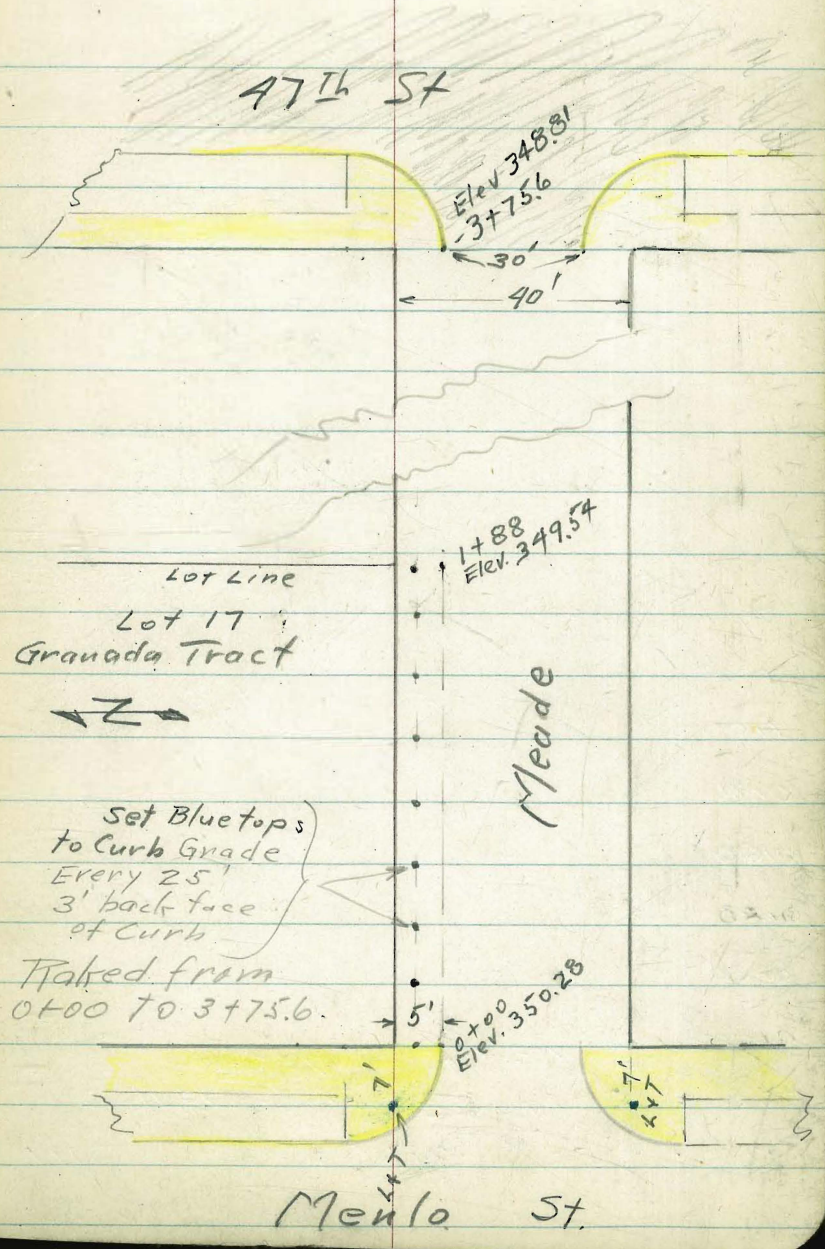 47Th St
Elev 348.81
-3+75.6
30'
40'
1+88
Elev. 349.54
Lot Line
Lot 17
Granada Tract
Z
Meade
Set Bluetops
to Curb Grade
Every 25'
3' back face
of Curb
Raked from
0+00 To 3+75.6.
5'
0+00
Elev. 350.28
7'
7'
L+T
L+T
Menlo St.